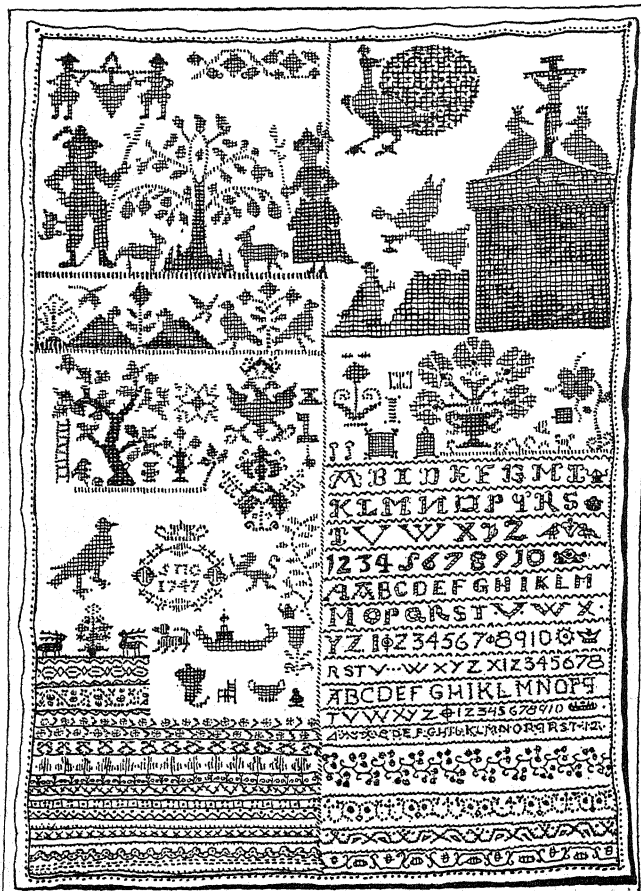 SMC
1747
A B C D E F G H I
K L M N O P Q R S
T V W X Y Z
1 2 3 4 5 6 7 8 9 10
A A B C D E F G H I K L M
M O P Q R S T V W X
Y Z 1 2 3 4 5 6 7 8 9 10
R S T V W X Y Z X I Z 3 4 5 6 7 8
A B C D E F G H I K L M N O P Q
T V W X Y Z 1 2 3 4 5 6 7 8 9 10